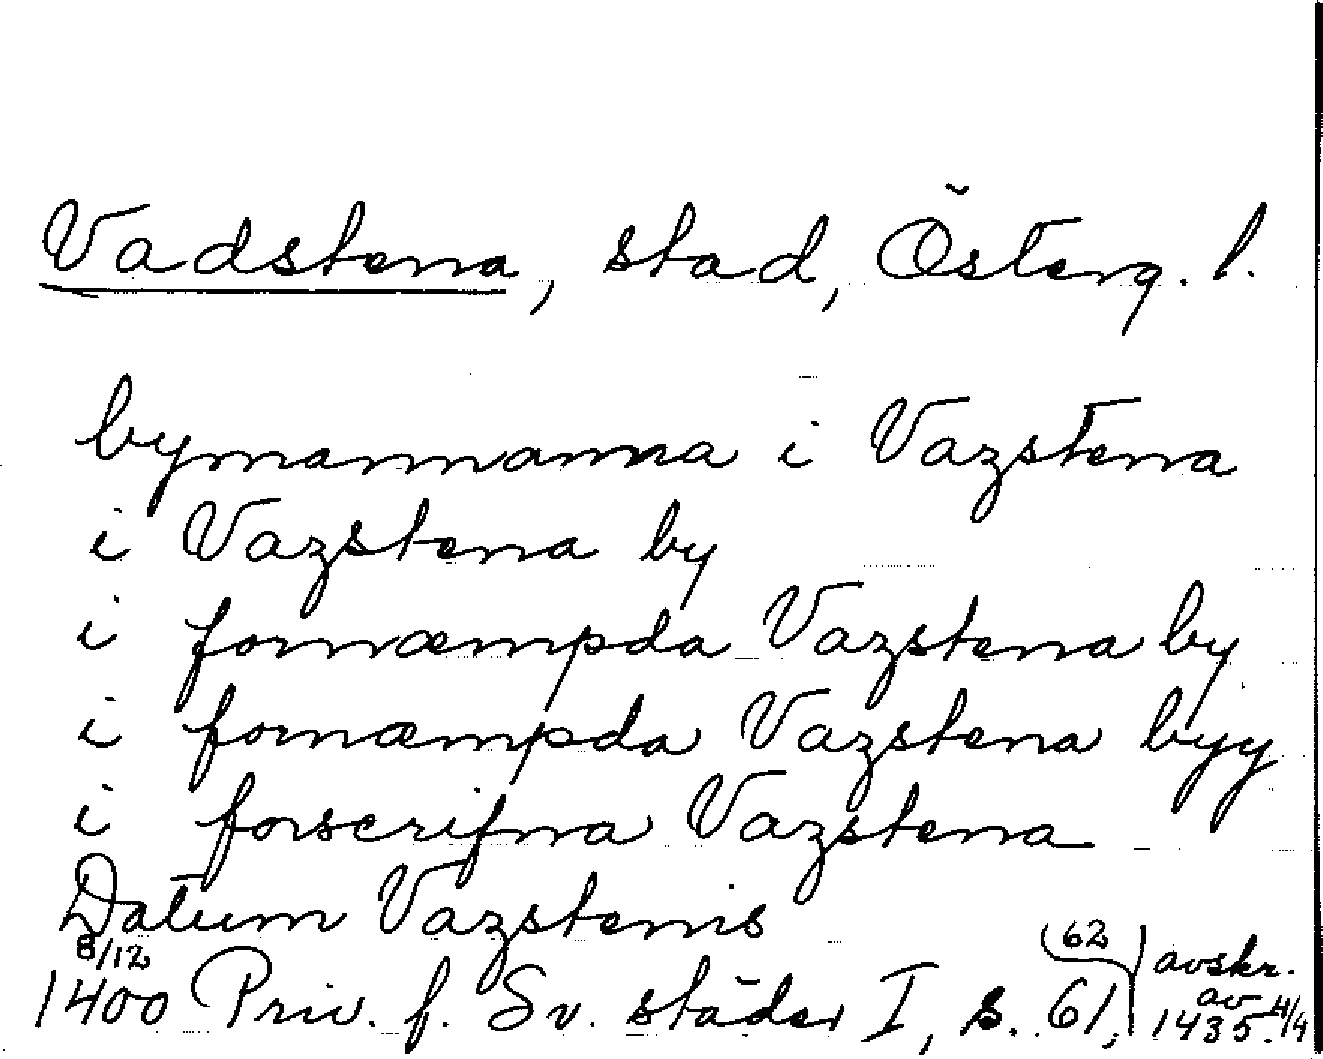 Vadstena, stad, Österg. l.
bymannanna i Vazstena
i Vazstena by
i fornæmpda Vazstena by
i fornæmpda Vazstena byy
i forscrifna Vazstena
Datum Vazstenis
8/12
1400 Priv. f. Sv. städer I, s. 61, (62) avskr. av 1435 4/4